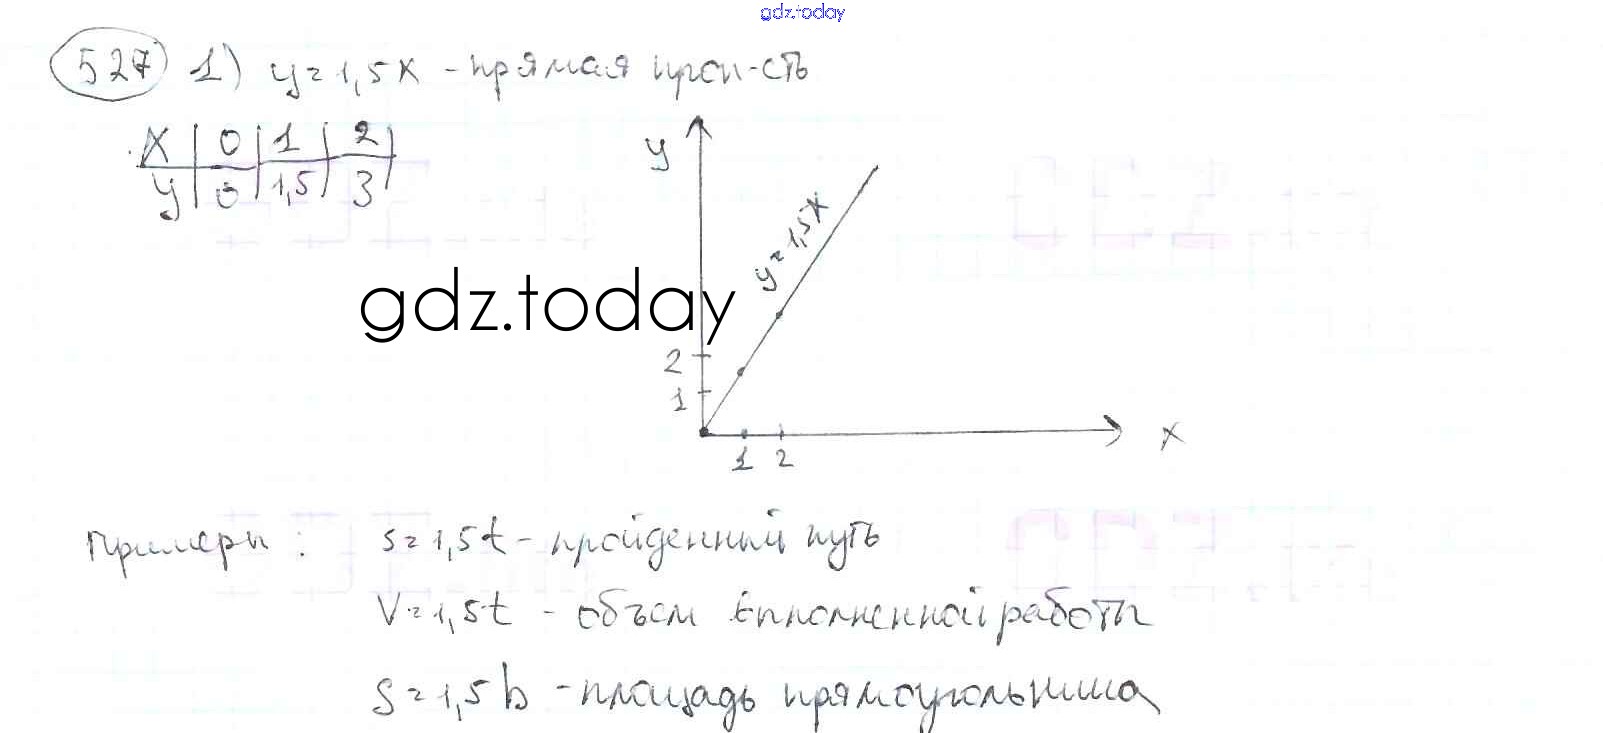 gdz.today
527 1) y = 1,5x - прямая проп-сть
x 0 1 2
y 0 1,5 3
y
y = 1,5x
gdz.today
2
1
1 2
x
Примеры: s = 1,5t - пройденный путь
V = 1,5t - объем выполненной работы
S = 1,5b - площадь прямоугольника